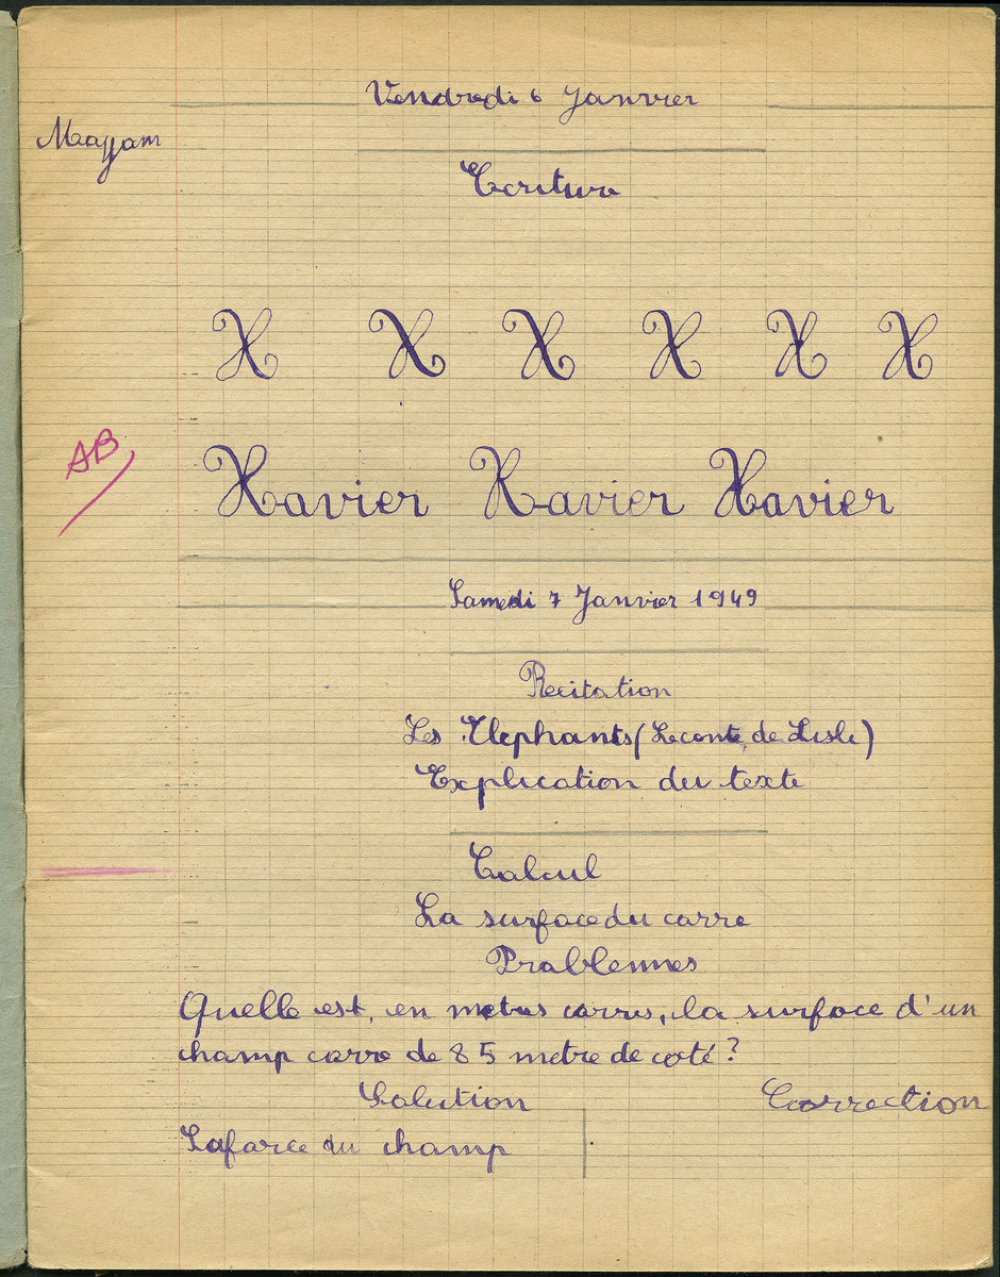 Vendredi 6 Janvier
Maygam
Ecriture
X X X X X X
AB
Xavier Xavier Xavier
Samedi 7 Janvier 1949
Recitation
Les Elephants (Leconte de Lisle)
Explication du texte
Calcul
La surface du carre
Problemmes
Quelle est, en metres carres, la surface d'un
champ carre de 85 metre de coté ?
Solution Correction
Lafarce du champ